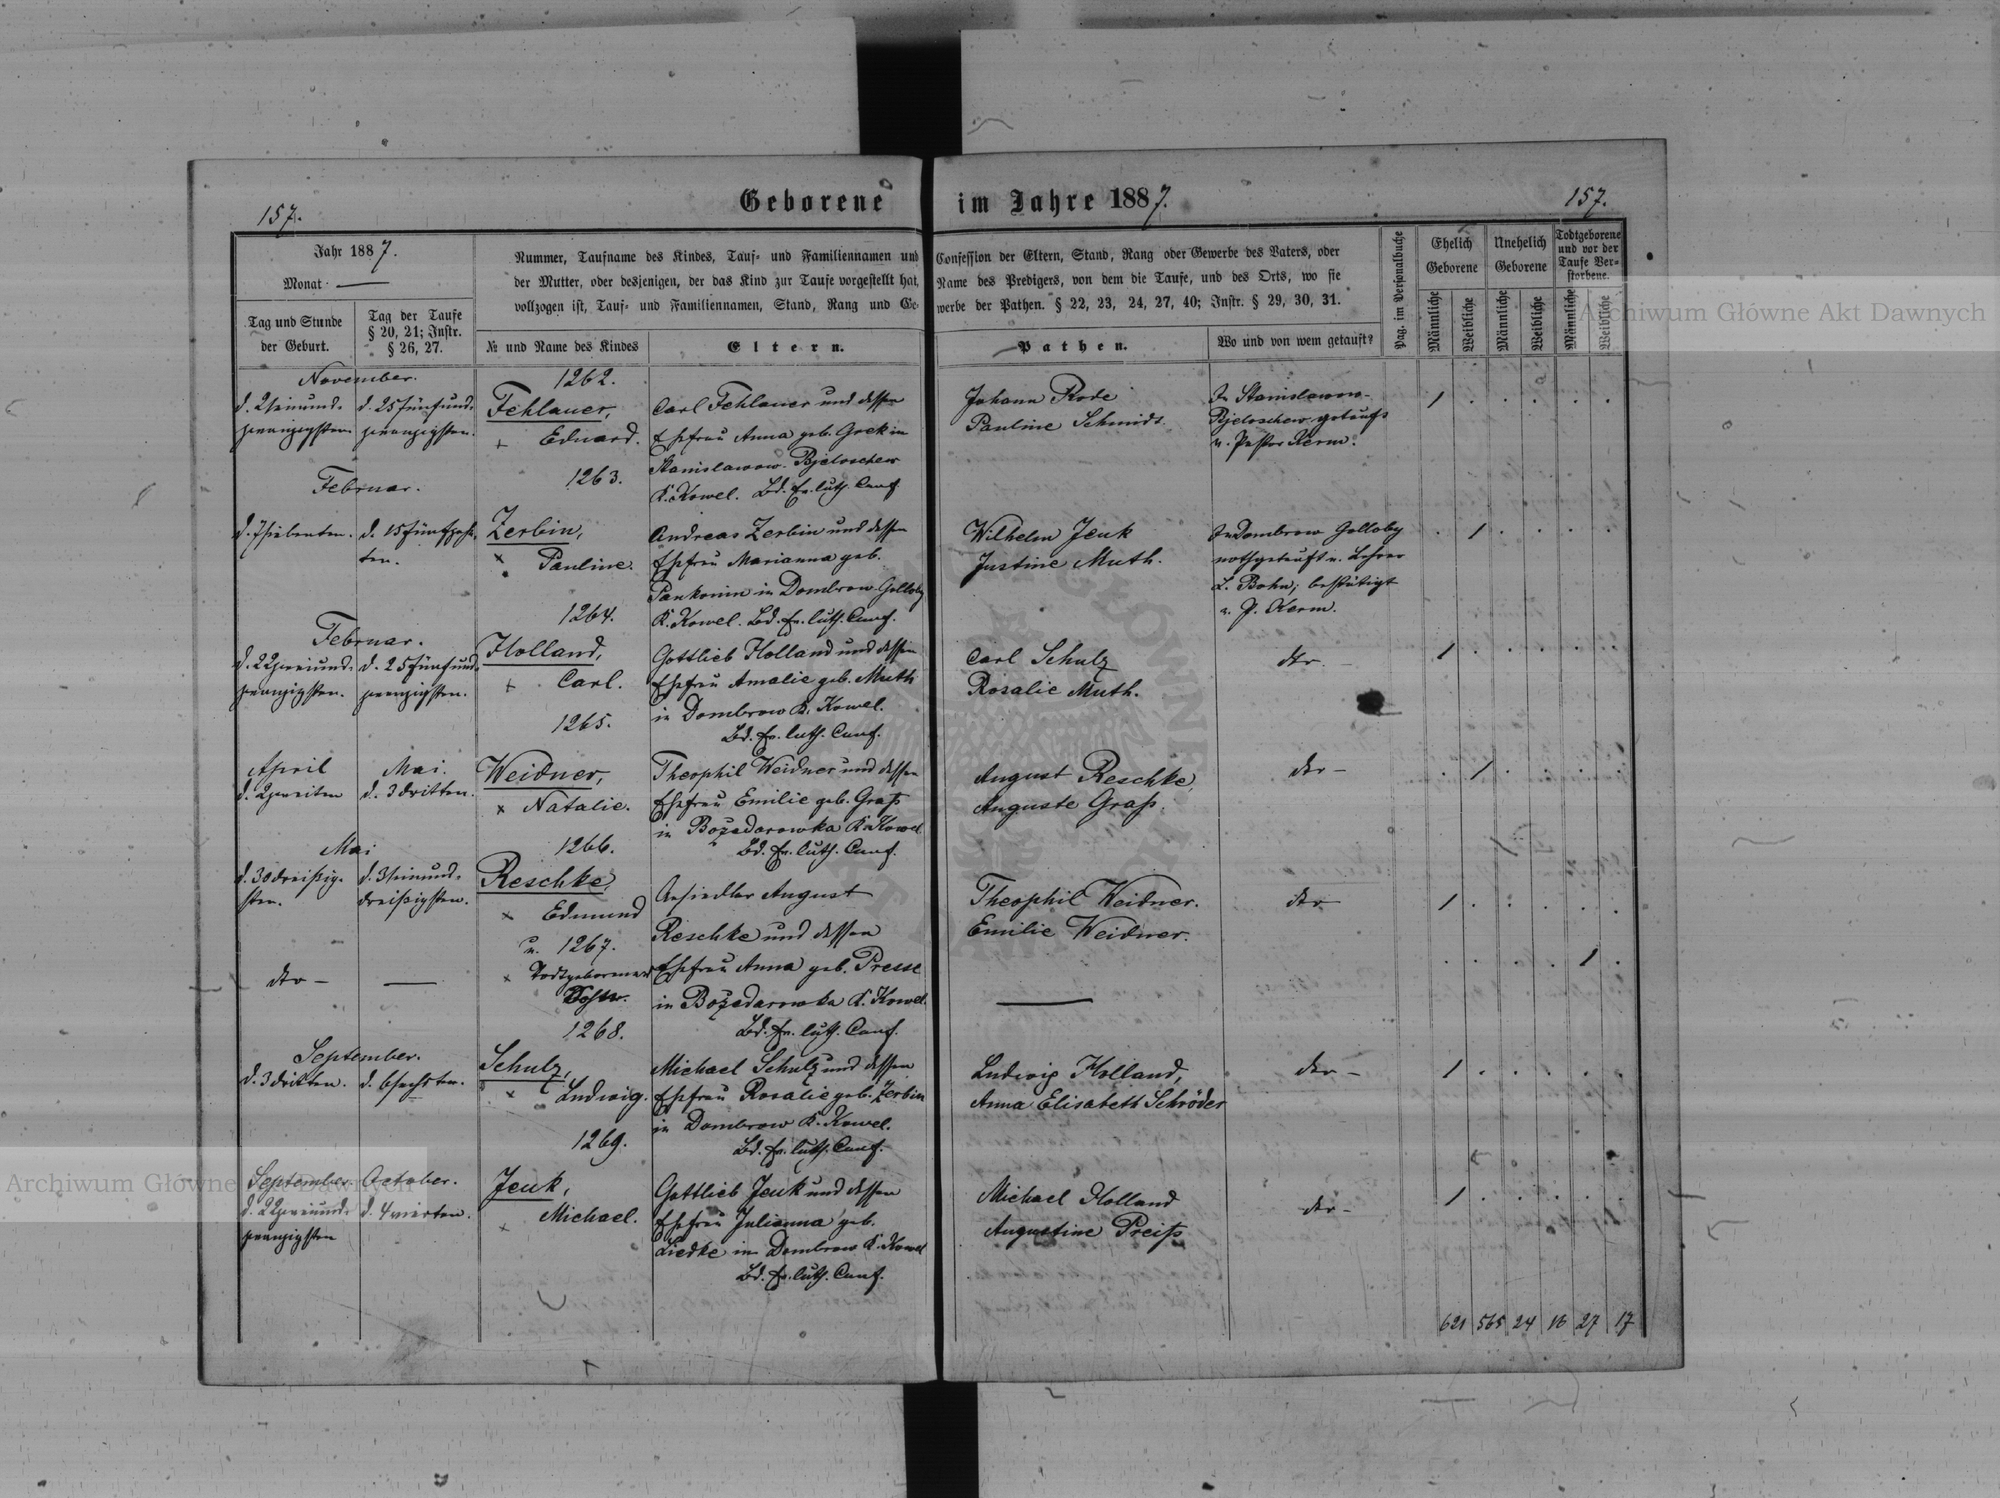 157.
Geborene im Jahre 1887.
157.
Jahr 1887.
Monat
Tag und Stunde
der Geburt.
Tag der Taufe
§ 20, 21; Instr.
§ 26, 27.
Nummer, Taufname des Kindes, Tauf- und Familiennamen und
der Mutter, oder desjenigen, der das Kind zur Taufe vorgestellt hat,
vollzogen ist, Tauf- und Familiennamen, Stand, Rang und Ge-
№ und Name des Kindes
Eltern.
Confession der Eltern, Stand, Rang oder Gewerbe des Vaters, oder
Name des Predigers, von dem die Taufe, und des Orts, wo sie
werbe der Pathen. § 22, 23, 24, 27, 40; Instr. § 29, 30, 31.
Pathen.
Wo und von wem getauft?
Pag. im Personalbuche
Ehelich
Geborene
Unehelich
Geborene
Todtgeborene
und vor der
Taufe Ver-
storbene.
Männliche
Weibliche
Männliche
Weibliche
Männliche
Weibliche
November.
d. 21einund-
zwanzigsten.
d. 25fünfund-
zwanzigsten.
1262.
Fehlauer,
Eduard.
Carl Fehlauer und dessen
Ehefrau Anna geb. Gock in
Stanislawow-Bjeloschew
K. Kowel. Bd. Ev. luth. Conf.
Johann Rode
Pauline Schmidt.
In Stanislawow-
Bjeloschew getauft
v. Pastor Kerm.
Februar.
d. 7siebenten.
d. 15fünfzehn-
ten.
1263.
Zerbin,
Pauline.
Andreas Zerbin und dessen
Ehefrau Marianna geb.
Pankonin in Dombrow Golloby
K. Kowel. Bd. Ev. luth. Conf.
Wilhelm Jeuk
Justine Muth.
In Dombrow Golloby
nothgetauft v. Lehrer
L. Bohn; bestätigt
v. P. Kerm.
Februar.
d. 22zweiund-
zwanzigsten.
d. 25fünfund-
zwanzigsten.
1264.
Holland,
Carl.
Gottlieb Holland und dessen
Ehefrau Amalie geb. Muth
in Dombrow K. Kowel.
Bd. Ev. luth. Conf.
Carl Schulz
Rosalie Muth.
dto. –
April
d. 2zweiten
Mai.
d. 3dritten.
1265.
Weidner,
Natalie.
Theophil Weidner und dessen
Ehefrau Emilie geb. Graß
in Božedarowka K. Kowel
Bd. Ev. luth. Conf.
August Reschke,
Auguste Graß.
dto –
Mai
d. 30dreißig-
sten.
d. 31einund-
dreißigsten.
1266.
Reschke,
Edmund
Ansiedler August
Reschke und dessen
Ehefrau Anna geb. Presse
in Božedarowka K. Kowel.
Bd. Ev. luth. Conf.
Theophil Weidner.
Emilie Weidner.
dto
dto –
u. 1267.
Todtgeborener
1268.
September.
d. 3dritten.
d. 6sechsten.
Schulz,
Ludwig.
Michael Schulz und dessen
Ehefrau Rosalie geb. Zerbin
in Dombrow K. Kowel.
Bd. Ev. luth. Conf.
Ludwig Holland,
Anna Elisabeth Schröder
dto –
September.
d. 22zweiund-
zwanzigsten
October.
d. 4vierten.
1269.
Jeuk,
Michael.
Gottlieb Jeuk und dessen
Ehefrau Julianna geb.
Liedke in Dombrow K. Kowel
Bd. Ev. luth. Conf.
Michael Holland
Augustine Preiß
dto –
621 565 24 16 27 17
Archiwum Główne Akt Dawnych
Archiwum Główne Akt Dawnych